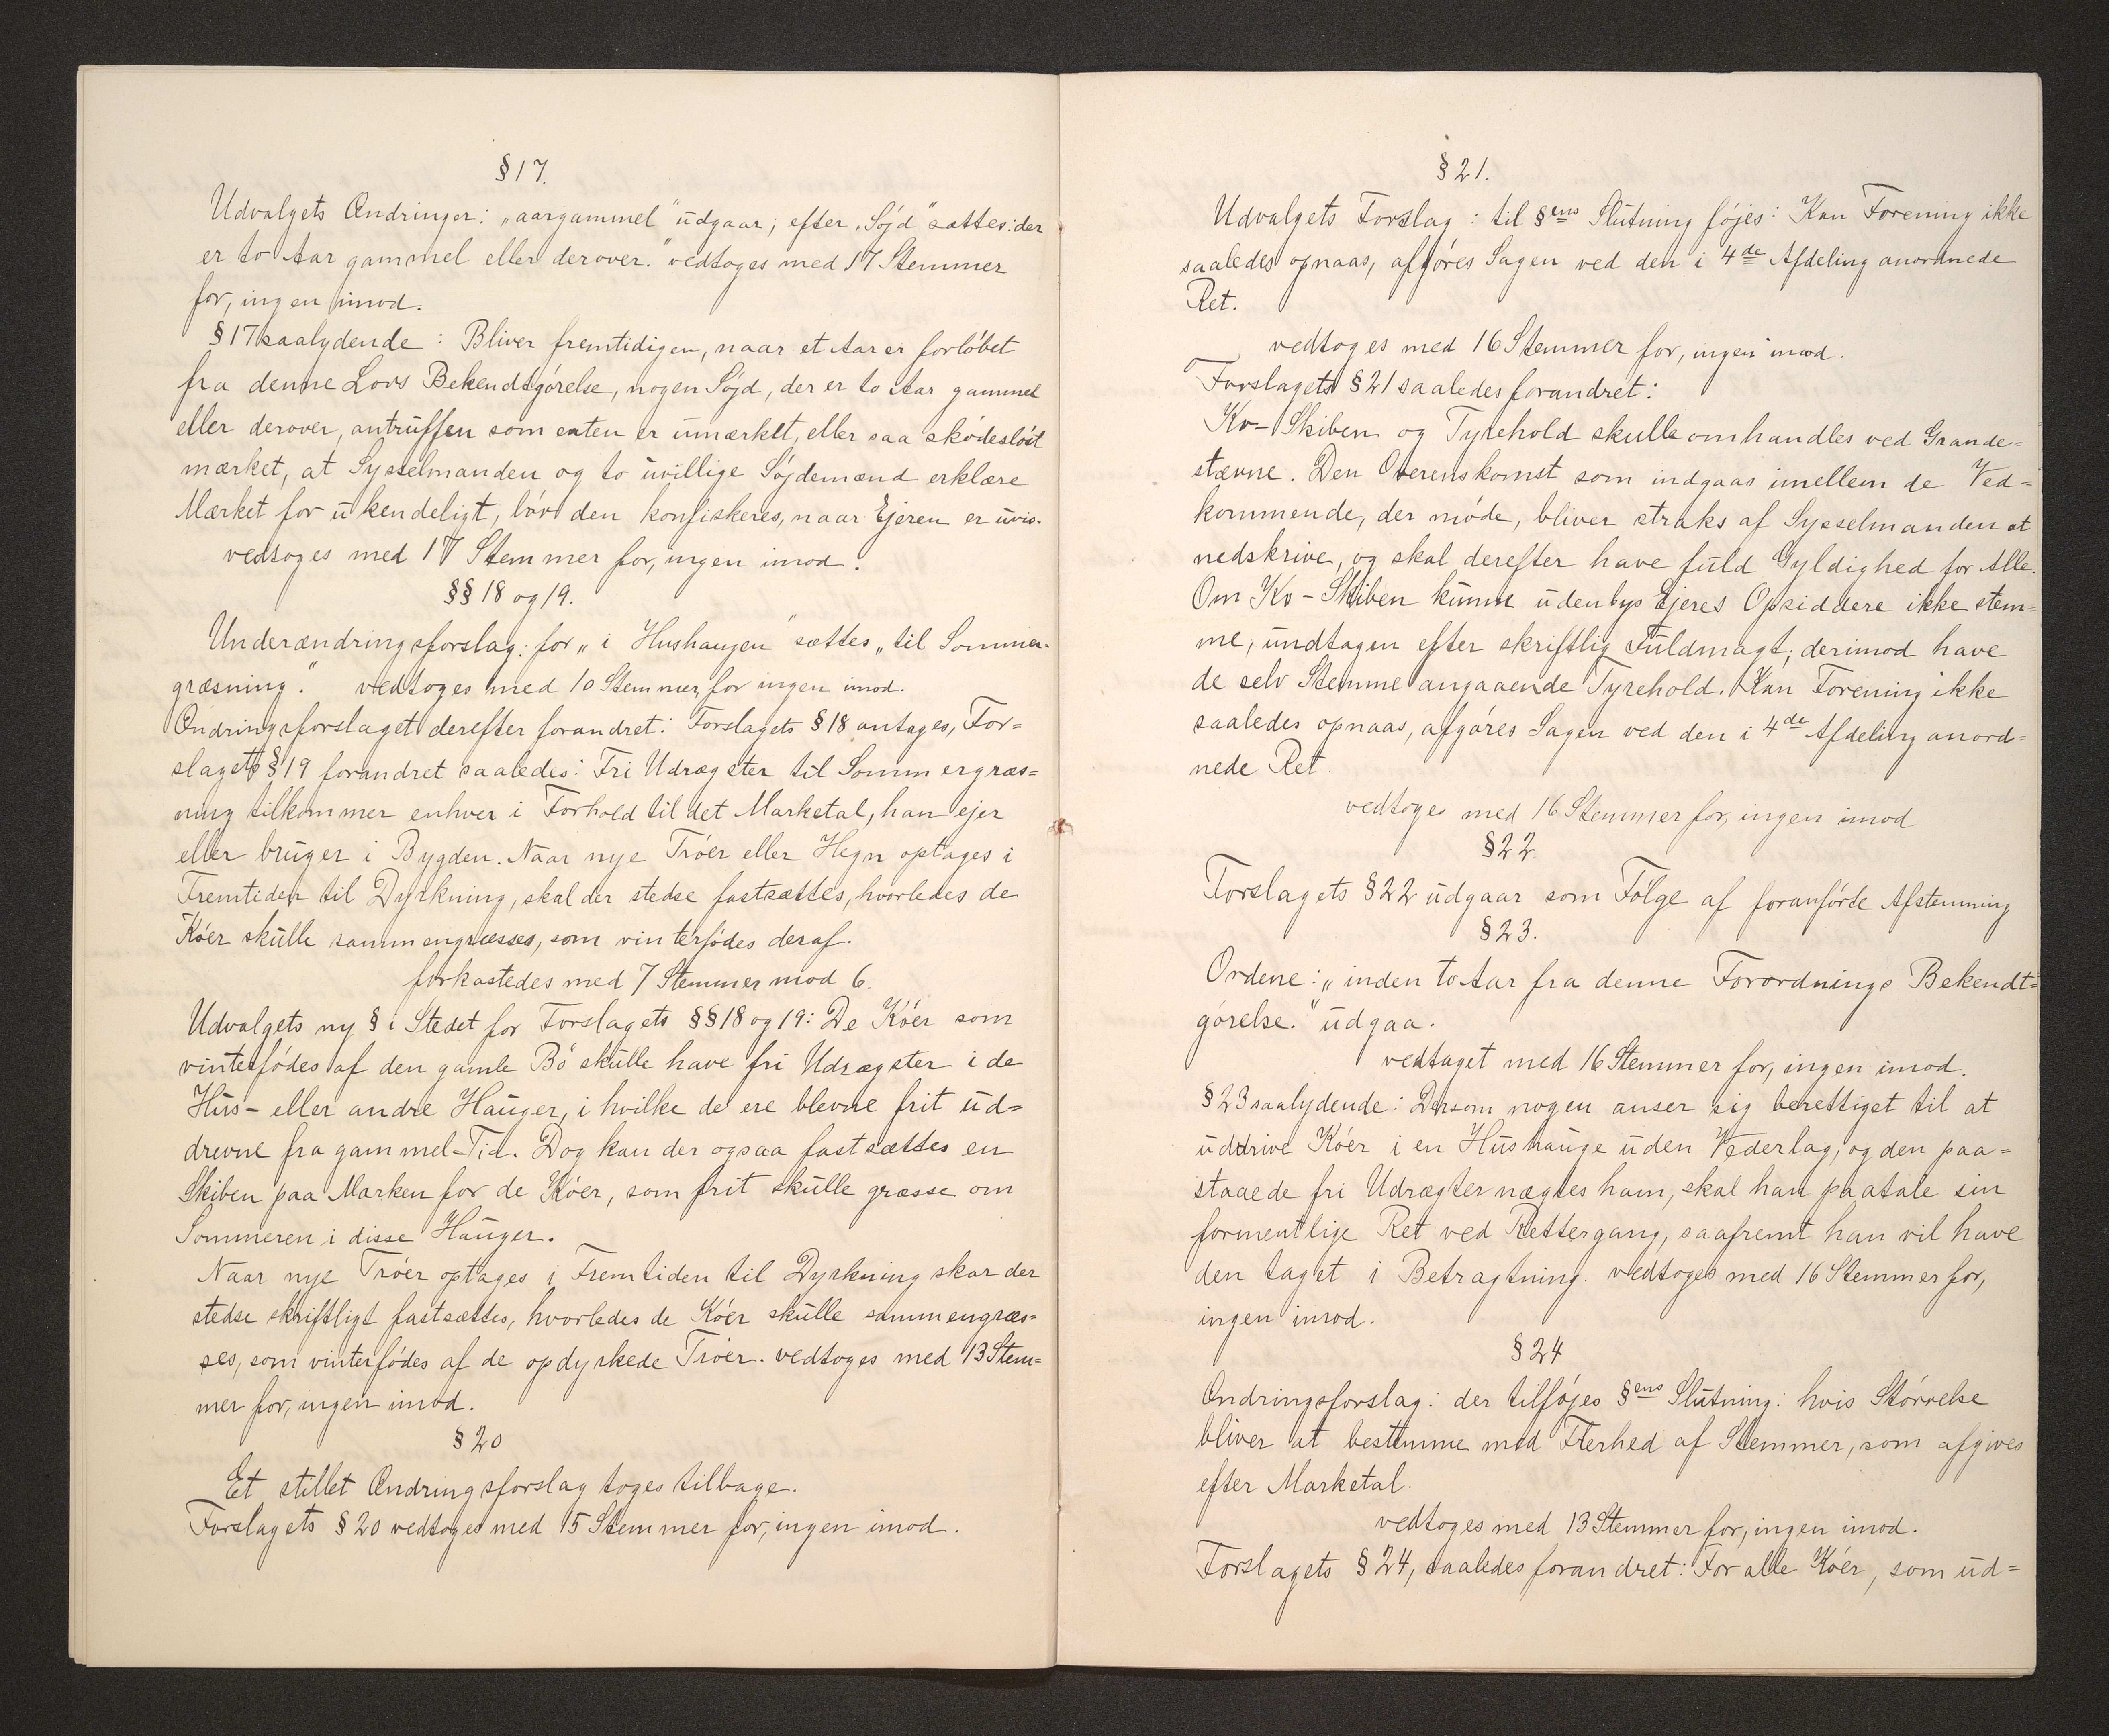 § 17.
Udvalgets Ændringer: „aargammel" udgaar; efter „Søjd" sættes: der
er to Aar gammel eller derover." vedtoges med 17 Stemmer
for, ingen imod.
§ 17 saalydende: Bliver fremtidigen, naar et Aar er forløbet
fra denne Lovs Bekendtgørelse, nogen Søjd, der er to Aar gammel
eller derover, antruffen som enten er umærket, eller saa skødesløst
mærket, at Sysselmanden og to uvillige Søjdemænd erklære
Mærket for ukendeligt, bør den konfiskeres, naar Ejeren er uvis.
vedtoges med 17 Stemmer for, ingen imod.
§§ 18 og 19.
Underændringsforslag: for „i Hushaugen" sættes „til Sommer-
græsning." vedtoges med 10 Stemmer for ingen imod.
Ændringsforslaget derefter forandret: Forslagets § 18 antages, For=
slagets § 19 forandret saaledes: Fri Udrægster til Sommergræs=
ning tilkommer enhver i Forhold til det Marketal, han ejer
eller bruger i Bygden. Naar nye Trøer eller Hegn optages i
Fremtiden til Dyrkning, skal der stedse fastsættes, hvorledes de
Køer skulle sammengræsses, som vinterfødes deraf.
forkastedes med 7 Stemmer mod 6.
Udvalgets ny § i Stedet for Forslagets §§ 18 og 19: De Køer som
vinterfødes af den gamle Bø skulle have fri Udrægster i de
Hus- eller andre Hauger, i hvilke de ere blevne frit ud=
drevne fra gammel-Tid. Dog kan der ogsaa fastsættes en
Skiben paa Marken for de Køer, som frit skulle græsse om
Sommeren i disse Hauger.
Naar nye Trøer optages i Fremtiden til Dyrkning skar der
stedse skriftligt fastsættes, hvorledes de Køer skulle sammengræs=
ses, som vinterfødes af de opdyrkede Trøer. vedtoges med 13 Stem=
mer for, ingen imod.
§ 20
Et stillet Ændringsforslag toges tilbage.
Forslagets § 20 vedtoges med 15 Stemmer for, ingen imod.
§ 21.
Udvalgets Forslag: til §ens Slutning føjes: Kan Forening ikke
saaledes opnaas, afgøres Sagen ved den i 4de Afdeling anordnede
Ret.
vedtoges med 16 Stemmer for, ingen imod.
Forslagets § 21 saaledes forandret:
Ko-Skiben og Tyrehold skulle omhandles ved Grande=
stævne. Den Overenskomst som indgaas imellem de Ved=
kommende, der møde, bliver straks af Sysselmanden at
nedskrive, og skal derefter have fuld Gyldighed for Alle.
Om Ko-Skiben kunne udenbys Ejeres Opsiddere ikke stem=
me, undtagen efter skriftlig Fuldmagt; derimod have
de selv Stemme angaaende Tyrehold. Kan Forening ikke
saaledes opnaas, afgøres Sagen ved den i 4de Afdeling anord=
nede Ret
vedtoges med 16 Stemmer for, ingen imod
§ 22
Forslagets § 22 udgaar som Følge af foranførte Afstemning
§ 23.
Ordene: „inden to Aar fra denne Forordnings Bekendt=
gørelse." udgaa.
vedtaget med 16 Stemmer for, ingen imod.
§ 23 saalydende: Dersom nogen anser sig berettiget til at
uddrive Køer i en Hushauge uden Vederlag, og den paa=
staaede fri Udrægter nægtes ham, skal han paatale sin
formentlige Ret ved Rettergang, saafremt han vil have
den taget i Betragtning. vedtoges med 16 Stemmer for,
ingen imod.
§ 24
Ændringsforslag: der tilføjes §ens Slutning: hvis Størrelse
bliver at bestemme med Flerhed af Stemmer, som afgives
efter Marketal.
vedtoges med 13 Stemmer for, ingen imod.
Forslagets § 24, saaledes forandret: For alle Køer, som ud=